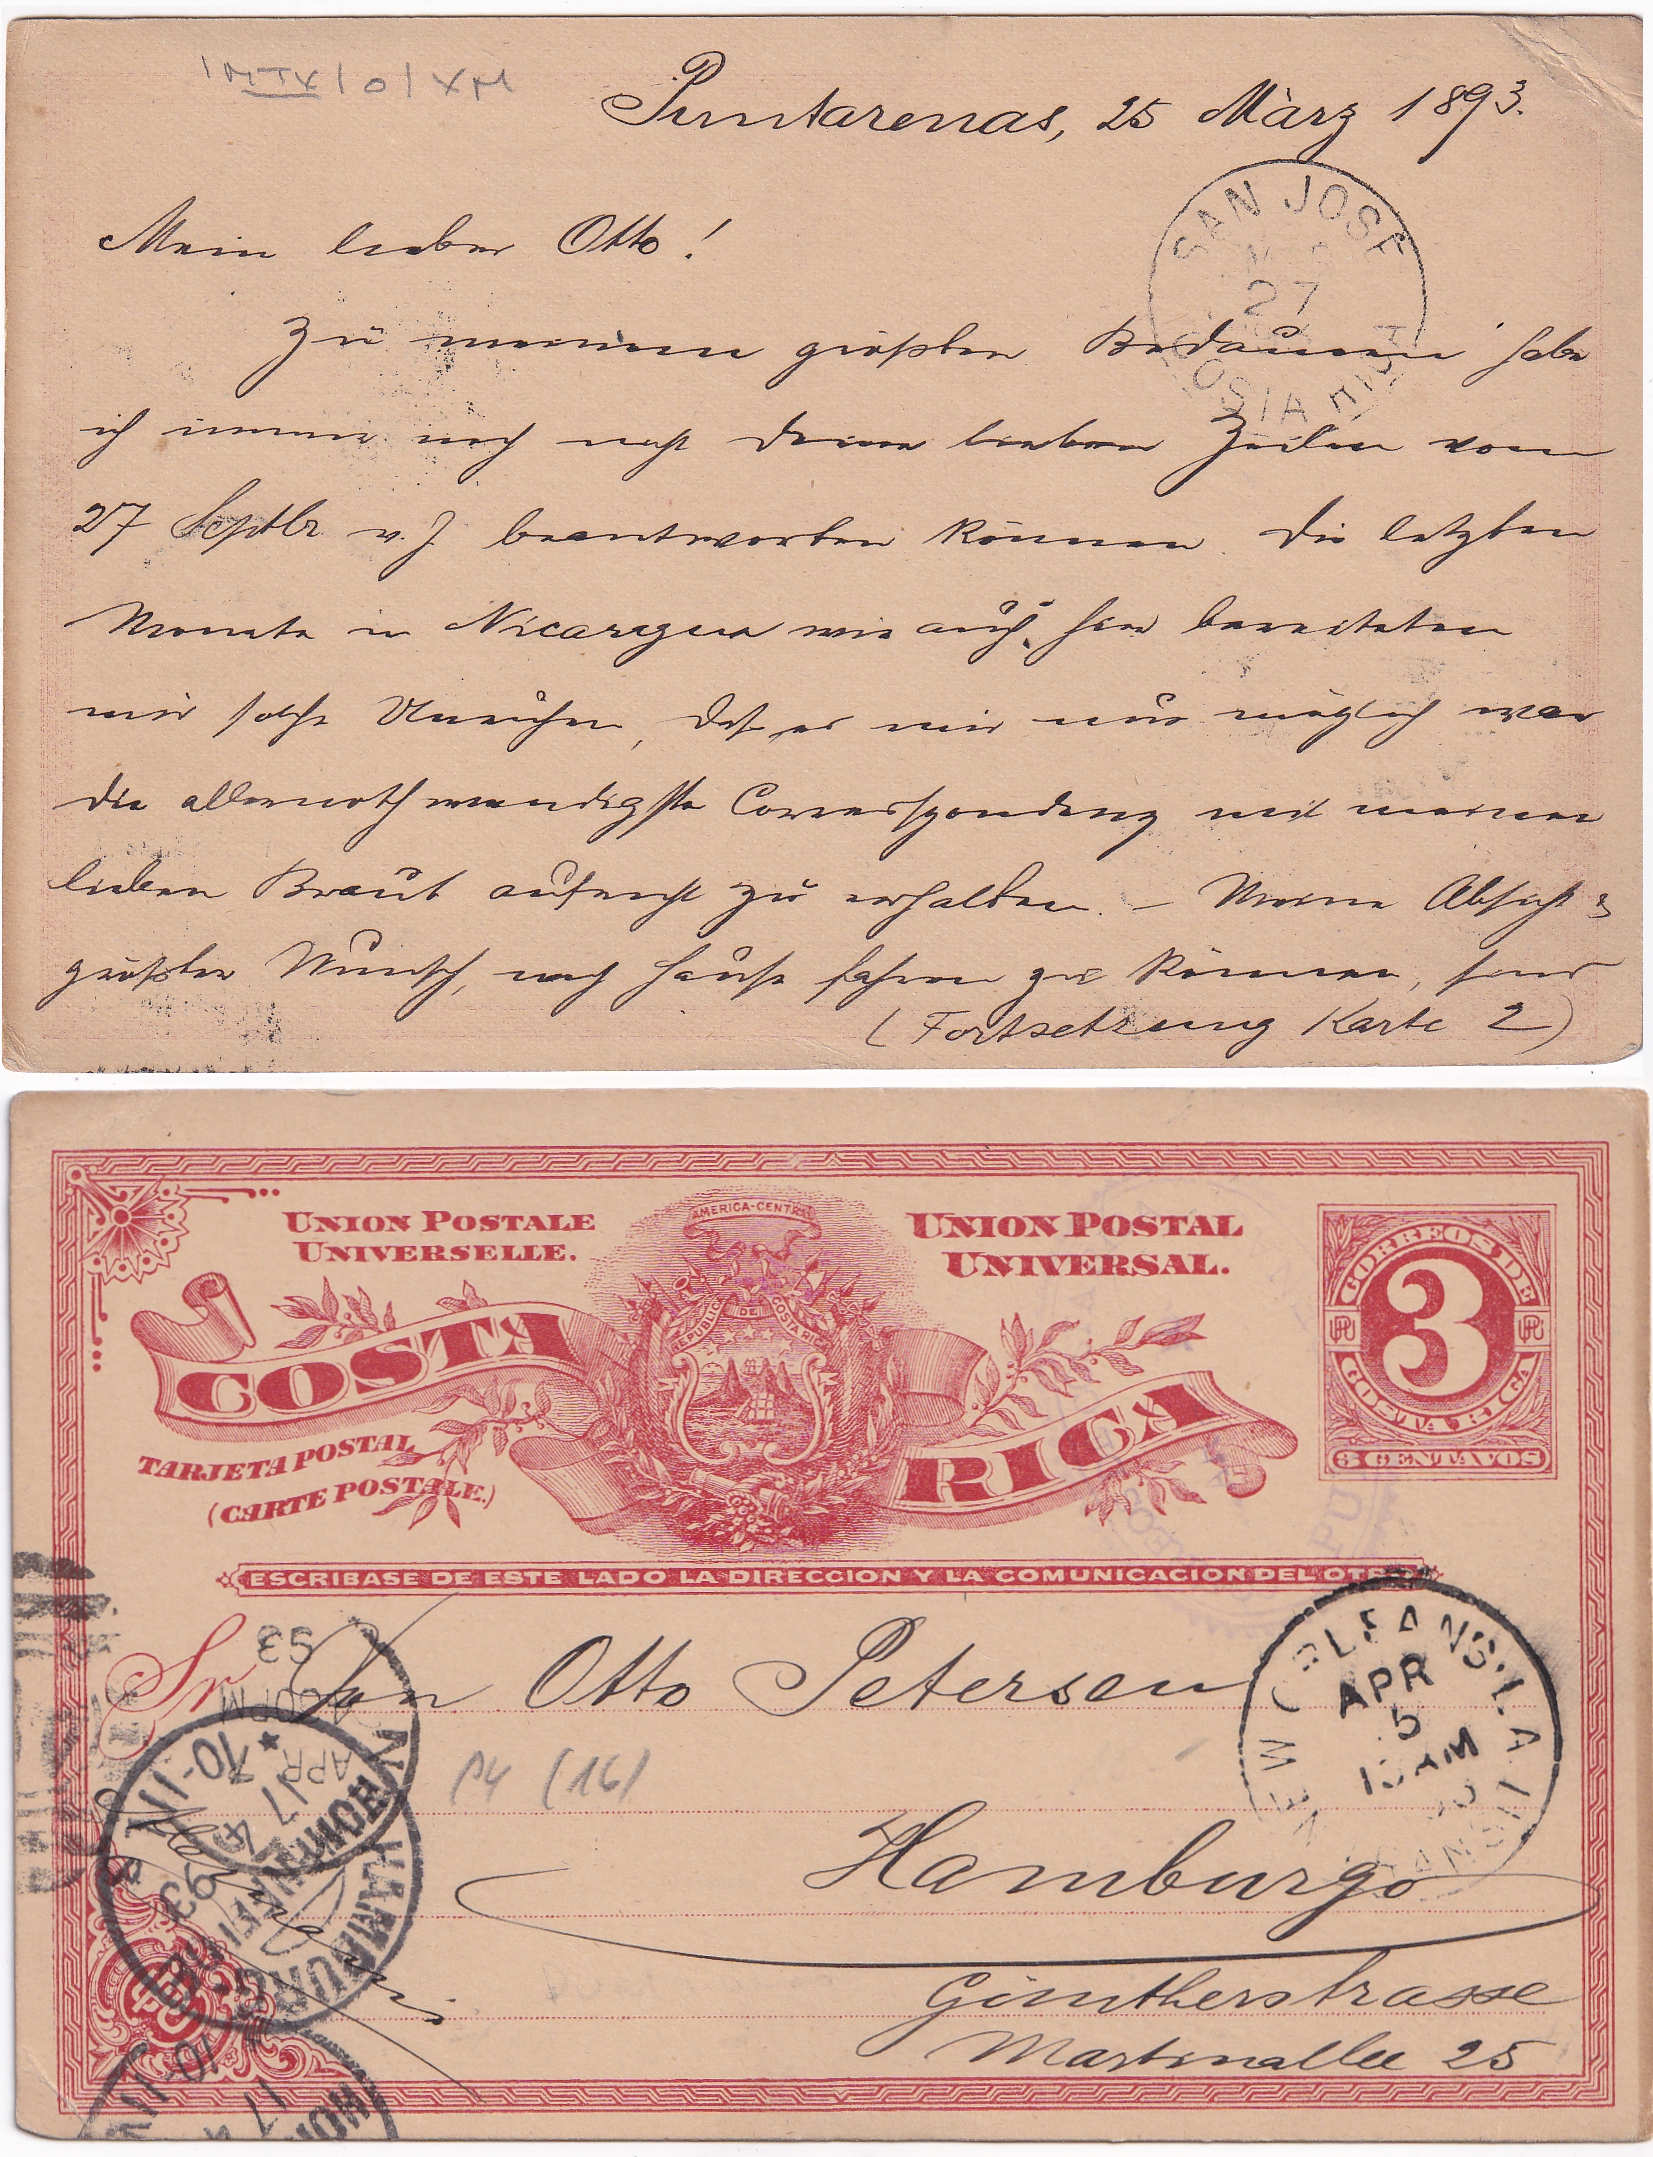 Puntarenas, 25 März 1893.
SAN JOSE
27
COSTA RICA
Mein lieber Otto!
Zu meinem größten Bedauern habe
ich immer noch nicht Deine lieben Zeilen vom
27 Septbr v. J. beantworten können. Die letzten
Monate in Nicaragua wie auch hier bereiteten
mir solche Unruhen, daß es mir nur möglich war
die allernothwendigste Correspondenz mit meiner
lieben Braut aufrecht zu erhalten. – Meine Absicht &
größter Wunsch, nach Hause fahren zu können, sind
(Fortsetzung Karte 2)
UNION POSTALE
UNIVERSELLE.
AMERICA-CENTRAL
UNION POSTAL
UNIVERSAL.
REPUBLICA DE COSTA RICA
COSTA RICA
TARJETA POSTAL
(CARTE POSTALE.)
CORREOS DE
3
COSTA RICA
3 CENTAVOS
ESCRIBASE DE ESTE LADO LA DIRECCION Y LA COMUNICACION DEL OTRO
Sr Don Otto Petersen
NEW ORLEANS, LA
APR
5
AM
TRANSIT
P4 (16)
Hamburgo
Güntherstrasse
Martinallee 25
APR
93
HAMBURG
HOHENFELDE
17 4
93
10-11V